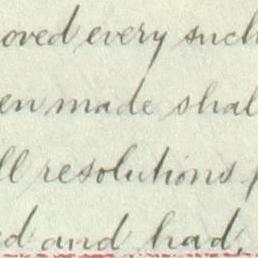 oved every such
en made shal
ll resolutions
ed and had,